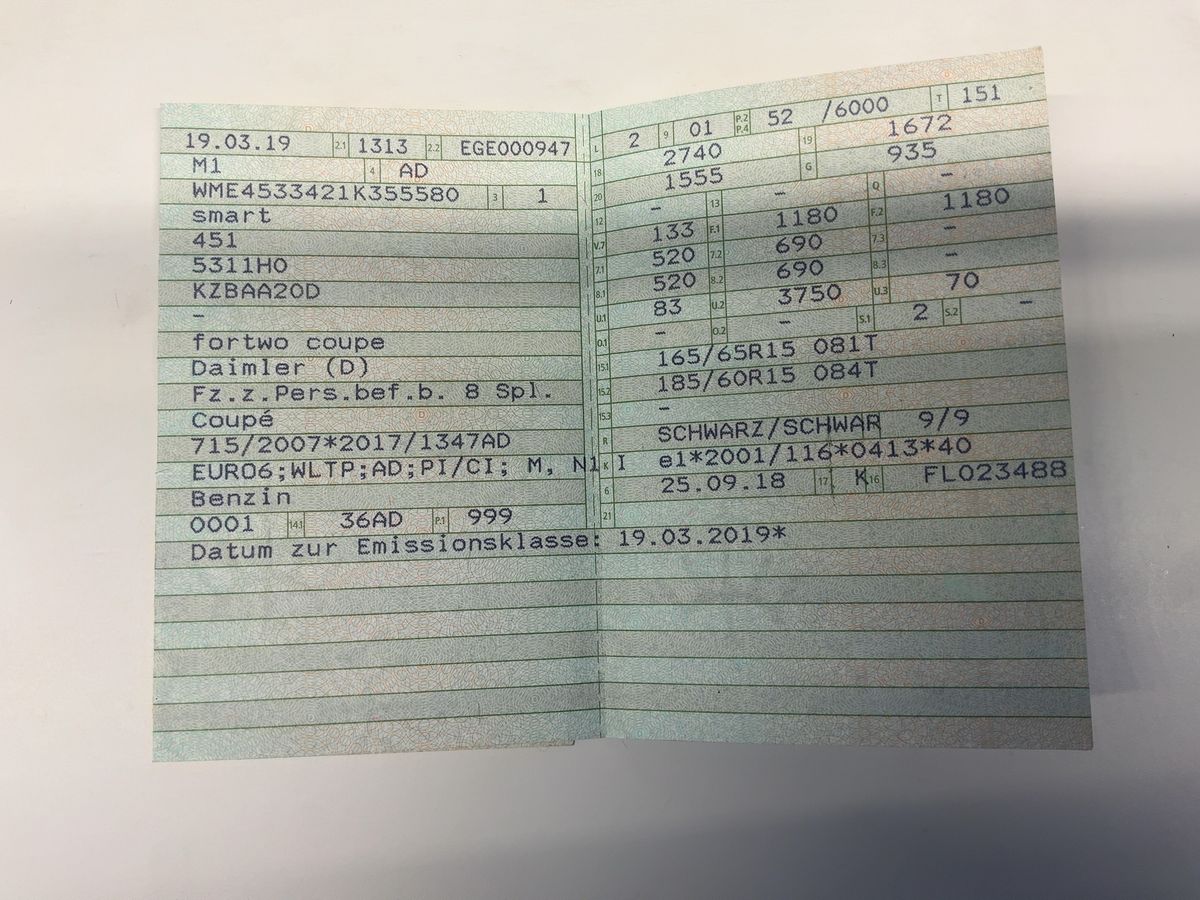 19.03.19 2.1 1313 2.2 EGE000947
M1 4 AD
WME4533421K355580 3 1
smart
451
5311H0
KZBAA20D
–
fortwo coupe
Daimler (D)
Fz.z.Pers.bef.b. 8 Spl.
Coupé
715/2007*2017/1347AD
EURO6;WLTP;AD;PI/CI; M, N1 I
Benzin
0001 14.1 36AD P.1 999
Datum zur Emissionsklasse: 19.03.2019*
L 2 9 01 P.2 P.4 52 /6000 T 151
18 2740 19 1672
20 1555 G 935
12 – 13 – Q –
V.7 133 F.1 1180 F.2 1180
7.1 520 7.2 690 7.3 –
8.1 520 8.2 690 8.3 –
U.1 83 U.2 3750 U.3 70
O.1 – O.2 – S.1 2 S.2 –
15.1 165/65R15 081T
15.2 185/60R15 084T
15.3 –
R SCHWARZ/SCHWAR 9/9
K e1*2001/116*0413*40
6 25.09.18 17 K 16 FL023488
21